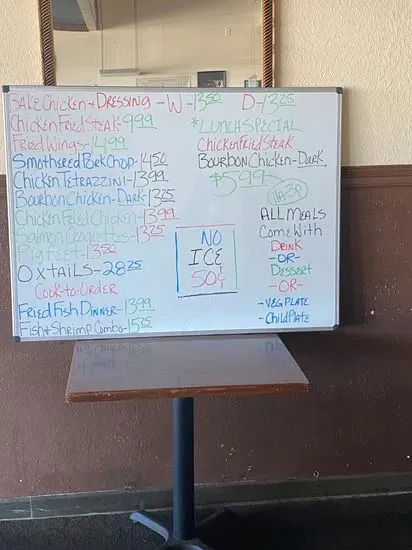 BAKE CHICKEN + DRESSING - W - 13.50 D - 13.25
CHICKEN FRIED STEAK - 9.99
FRIED WINGS - 14.99
SMOTHERED PORK CHOP - 14.50
CHICKEN TETRAZZINI - 13.99
BOURBON CHICKEN - DARK - 13.25
CHICKEN FRIED CHICKEN - 13.99
SALMON CROQUETTES - 13.25
PIG FEET - 13.50
OXTAILS - 28.25
COOK-TO-ORDER
FRIED FISH DINNER - 13.99
FISH + SHRIMP COMBO - 15.25
*LUNCH SPECIAL
CHICKEN FRIED STEAK
BOURBON CHICKEN - DARK
$5.99
11A-3P
NO
ICE
50¢
ALL MEALS
COME WITH
DRINK
-OR-
DESSERT
-OR-
-VEG PLATE
-CHILD PLATE